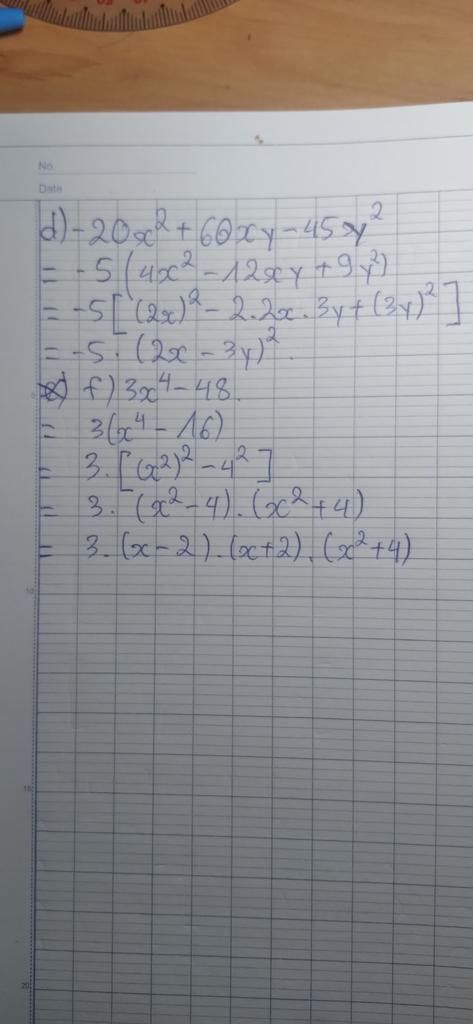 No.
Date
d) -20x² + 60xy - 45y²
= -5 (4x² - 12xy + 9y²)
= -5 [(2x)² - 2.2x.3y + (3y)²]
= -5. (2x - 3y)².
f) 3x⁴ - 48.
= 3(x⁴ - 16)
= 3. [(x²)² - 4²]
= 3. (x² - 4). (x² + 4)
= 3. (x - 2). (x + 2). (x² + 4)
10
15
20